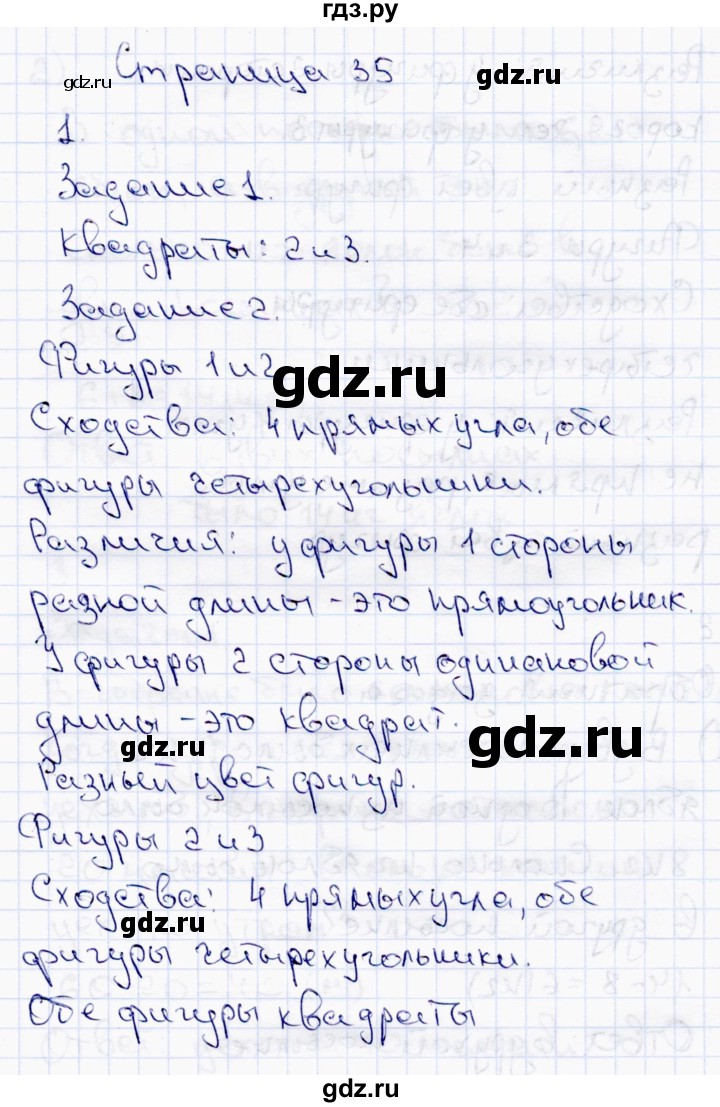 гдз.ру
Страница 35
gdz.ru
gdz.ru
1.
Задание 1.
Квадраты: 2 и 3.
Задание 2.
Фигуры 1 и 2
gdz.ru
Сходства: 4 прямых угла, обе
фигуры четырехугольники.
Различия: у фигуры 1 стороны
разной длины - это прямоугольник.
У фигуры 2 стороны одинаковой
длины - это квадрат.
gdz.ru
gdz.ru
Разный цвет фигур.
Фигуры 2 и 3
Сходства: 4 прямых угла, обе
gdz.ru
фигуры четырехугольники.
Обе фигуры квадраты
gdz.ru